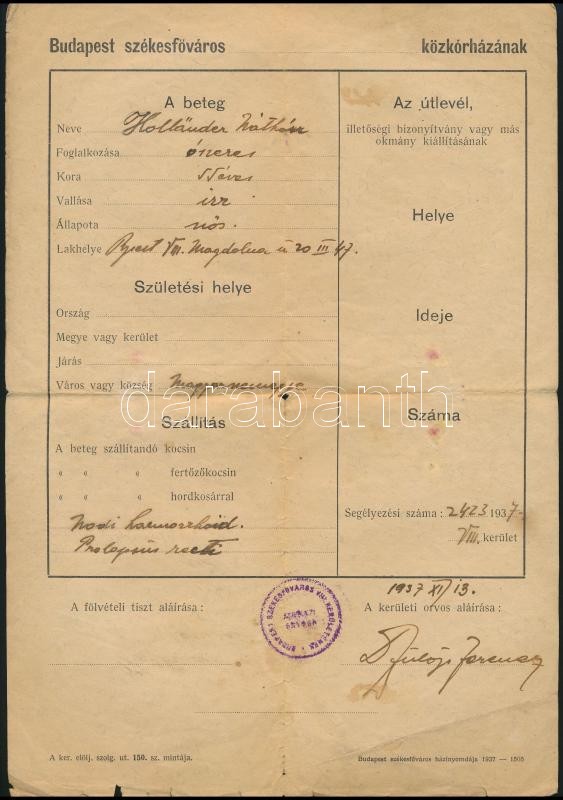 Budapest székesfőváros közkórházának
A beteg
Neve Holländer Náthán
Foglalkozása ószeres
Kora 55 éves
Vallása izr
Állapota nős.
Lakhelye Bpest VIII. Magdolna u 20 III 47.
Születési helye
Ország
Megye vagy kerület
Járás
Város vagy község
Szállítás
A beteg szállítandó kocsin
« « « fertőzőkocsin
« « « hordkosárral
Nodi haemorrhoid.
Prolapsus recti
Az útlevél,
illetőségi bizonyítvány vagy más
okmány kiállításának
Helye
Ideje
Száma
Segélyezési száma : 2423 1937-
VIII. kerület
1937 XI/13.
A fölvételi tiszt aláírása :
A kerületi orvos aláírása :
BUDAPEST SZÉKESFŐVÁROS VIII. KERÜLETÉNEK
KERÜLETI
ORVOSA
Ferenc
A ker. előlj. szolg. ut. 150. sz. mintája.
Budapest székesfőváros házinyomdája 1937 — 1505
darabanth